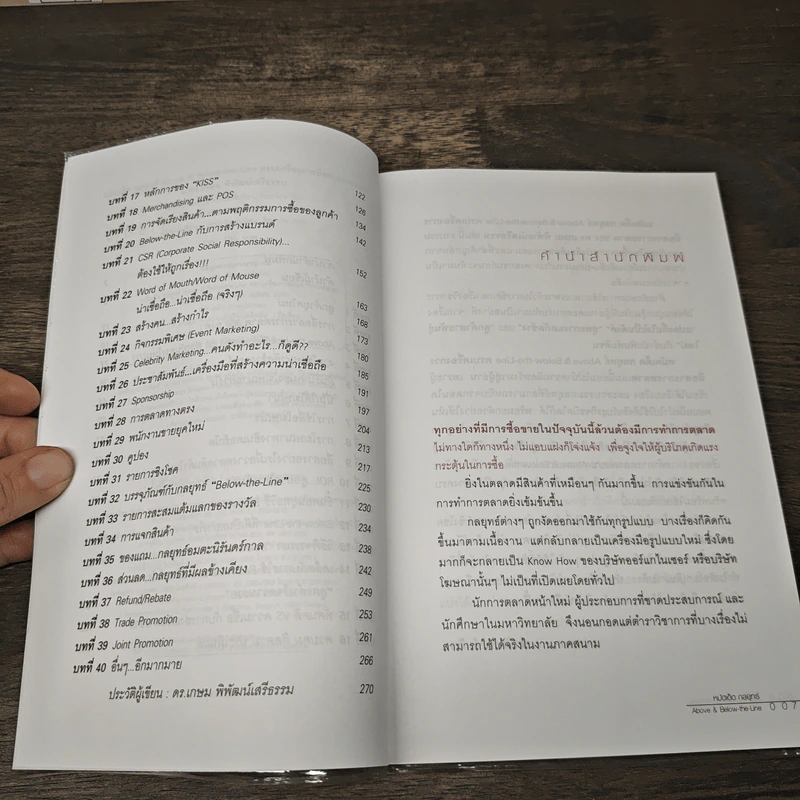 บทที่ 17 หลักการของ "KISS" 122
บทที่ 18 Merchandising และ POS 126
บทที่ 19 การจัดเรียงสินค้า...ตามพฤติกรรมการซื้อของลูกค้า 134
บทที่ 20 Below-the-Line กับการสร้างแบรนด์ 142
บทที่ 21 CSR (Corporate Social Responsibility)...
ต้องใช้ให้ถูกเรื่อง!!! 152
บทที่ 22 Word of Mouth/Word of Mouse
น่าเชื่อถือ...น่าเชื่อถือ (จริงๆ) 163
บทที่ 23 สร้างคน...สร้างกำไร 168
บทที่ 24 กิจกรรมพิเศษ (Event Marketing) 173
บทที่ 25 Celebrity Marketing...คนดังทำอะไร...ก็ดูดี?? 180
บทที่ 26 ประชาสัมพันธ์...เครื่องมือที่สร้างความน่าเชื่อถือ 185
บทที่ 27 Sponsorship 191
บทที่ 28 การตลาดทางตรง 197
บทที่ 29 พนักงานขายยุคใหม่ 204
บทที่ 30 คูปอง 213
บทที่ 31 รายการชิงโชค 217
บทที่ 32 บรรจุภัณฑ์กับกลยุทธ์ "Below-the-Line" 225
บทที่ 33 รายการสะสมแต้มแลกของรางวัล 230
บทที่ 34 การแจกสินค้า 234
บทที่ 35 ของแถม...กลยุทธ์อมตะนิรันดร์กาล 238
บทที่ 36 ส่วนลด...กลยุทธ์ที่มีผลข้างเคียง 242
บทที่ 37 Refund/Rebate 249
บทที่ 38 Trade Promotion 253
บทที่ 39 Joint Promotion 261
บทที่ 40 อื่นๆ...อีกมากมาย 266
ประวัติผู้เขียน : ดร.เกษม พิพัฒน์เสรีธรรม 270
คำนำสำนักพิมพ์
ทุกอย่างที่มีการซื้อขายในปัจจุบันนี้ล้วนต้องมีการทำการตลาด
ไม่ทางใดก็ทางหนึ่ง ไม่แอบแฝงก็โจ่งแจ้ง เพื่อจูงใจให้ผู้บริโภคเกิดแรง
กระตุ้นในการซื้อ
ยิ่งในตลาดมีสินค้าที่เหมือนๆ กันมากขึ้น การแข่งขันกันใน
การทำการตลาดยิ่งเข้มข้นขึ้น
กลยุทธ์ต่างๆ ถูกงัดออกมาใช้กันทุกรูปแบบ บางเรื่องก็คิดกัน
ขึ้นมาตามเนื้องาน แต่กลับกลายเป็นเครื่องมือรูปแบบใหม่ ซึ่งโดย
มากก็จะกลายเป็น Know How ของบริษัทออร์แกไนเซอร์ หรือบริษัท
โฆษณานั้นๆ ไม่เป็นที่เปิดเผยโดยทั่วไป
นักการตลาดหน้าใหม่ ผู้ประกอบการที่ขาดประสบการณ์ และ
นักศึกษาในมหาวิทยาลัย จึงนอนกอดแต่ตำราวิชาการที่บางเรื่องไม่
สามารถใช้ได้จริงในงานภาคสนาม
หมัดเด็ด กลยุทธ์
Above & Below-the-Line 007